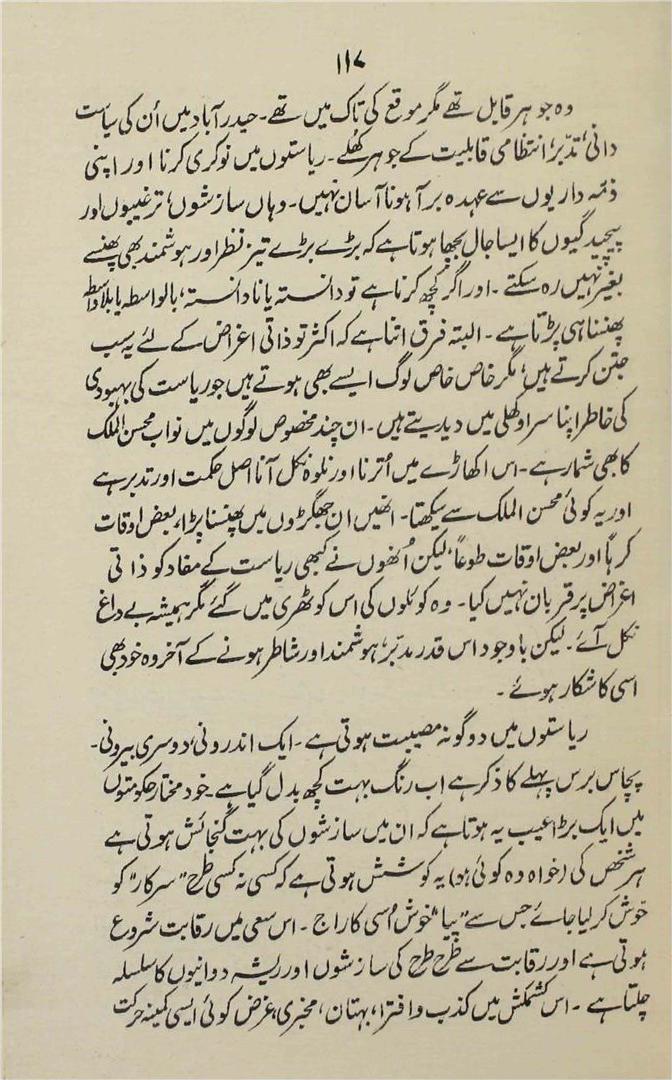 ۱۱۷
وہ جوہر قابل تھے مگر موقع کی تاک میں تھے۔ حیدرآباد میں اُن کی سیاست
دانی، تدبّر، انتظامی قابلیت کے جوہر کھُلے۔ ریاستوں میں نوکری کرنا اور اپنی
ذمّہ داریوں سے عہدہ برآ ہونا آسان نہیں۔ وہاں سازشوں، ترغیبوں اور
پیچیدگیوں کا ایسا جال بچھا ہوتا ہے کہ بڑے بڑے تیز نظر اور ہوشمند بھی پھنسے
بغیر نہیں رہ سکتے۔ اور اگر کُچھ کرنا ہے تو دانستہ یا نادانستہ، بالواسطہ یا بلا واسطہ
پھنسنا ہی پڑتا ہے۔ البتہ فرق اتنا ہے کہ اکثر تو ذاتی اغراض کے لئے یہ سب
جتن کرتے ہیں، مگر خاص خاص لوگ ایسے بھی ہوتے ہیں جو ریاست کی بہبودی
کی خاطر اپنا سر اوکھلی میں دیدیتے ہیں۔ ان چند مخصوص لوگوں میں نواب محسن الملک
کا بھی شمار ہے۔ اس اکھاڑے میں اُترنا اور نلوہ نکل آنا اصل حکمت اور تدبر ہے
اور یہ کوئی محسن الملک سے سیکھتا۔ انھیں ان جھگڑوں میں پھنسنا پڑا، بعض اوقات
کرہاً اور بعض اوقات طوعاً، لیکن اُنھوں نے کبھی ریاست کے مفاد کو ذاتی
اغراض پر قربان نہیں کیا۔ وہ کوئلوں کی اس کوٹھری میں گئے مگر ہمیشہ بے داغ
نکل آئے۔ لیکن باوجود اس قدر مدبّر، ہوشمند اور شاطر ہونے کے آخر وہ خود بھی
اسی کا شکار ہوئے۔
ریاستوں میں دو گونہ مصیبت ہوتی ہے۔ ایک اندرونی، دوسری بیرونی۔
پچاس برس پہلے کا ذکر ہے اب رنگ بہت کچھ بدل گیا ہے۔ خود مختار حکومتوں
میں ایک بڑا عیب یہ ہوتا ہے کہ ان میں سازشوں کی بہت گنجائش ہوتی ہے
ہر شخص کی (خواہ وہ کوئی ہو) یہ کوشش ہوتی ہے کہ کسی نہ کسی طرح "سرکار" کو
خوش کر لیا جائے جس سے "پیا" خوش اُسی کا راج۔ اس سعی میں رقابت شروع
ہوتی ہے اور رقابت سے طرح طرح کی سازشوں اور ریشہ دوانیوں کا سلسلہ
چلتا ہے۔ اس کشمکش میں کذب و افترا، بہتان، مخبری، غرض کوئی ایسی کمینہ حرکت